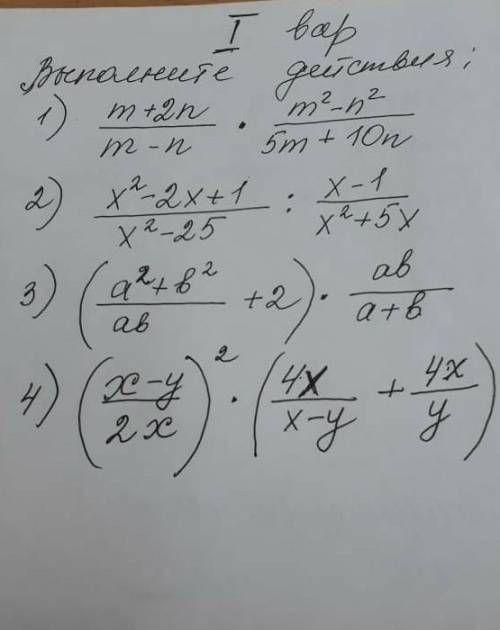 I вар
Выполните действия;
1) (m+2n)/(m-n) · (m²-n²)/(5m+10n)
2) (x²-2x+1)/(x²-25) : (x-1)/(x²+5x)
3) ((a²+b²)/(ab) +2) · (ab)/(a+b)
4) ((x-y)/(2x))² · ((4x)/(x-y) + (4x)/y)